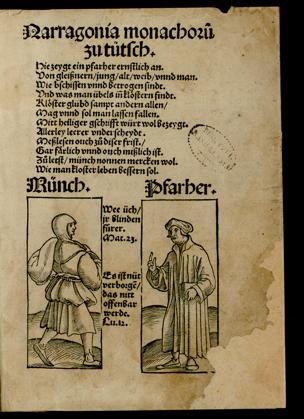 Narragonia monachorū
zu tütsch.
Hie zeygt ein pfarher ernstlich an.
Von gleißnern/jung/alt/weib/vnnd man.
Wie bschissen vnnd betrogen sinde.
Vnd was man übels in klöstern finde.
Klöster glübd sampt andern allen/
Mag vnnd sol man lassen fallen.
Mitt heiliger gschrifft würt wol bezeygt.
Allerley lerer vnderscheydt.
Meßlesen ouch zū diser frist/
Gar klärlich vnnd ouch mißlich ist.
Zū letst/münch nonnen mercken wol.
Wie man kloster leben bessern sol.
Münch.
Pfarher.
Wee üch/
jr blinden
fürer.
Mat.23.
Es ist nüt
verborgē/
das nitt
offenbar
werde.
Lu.12.